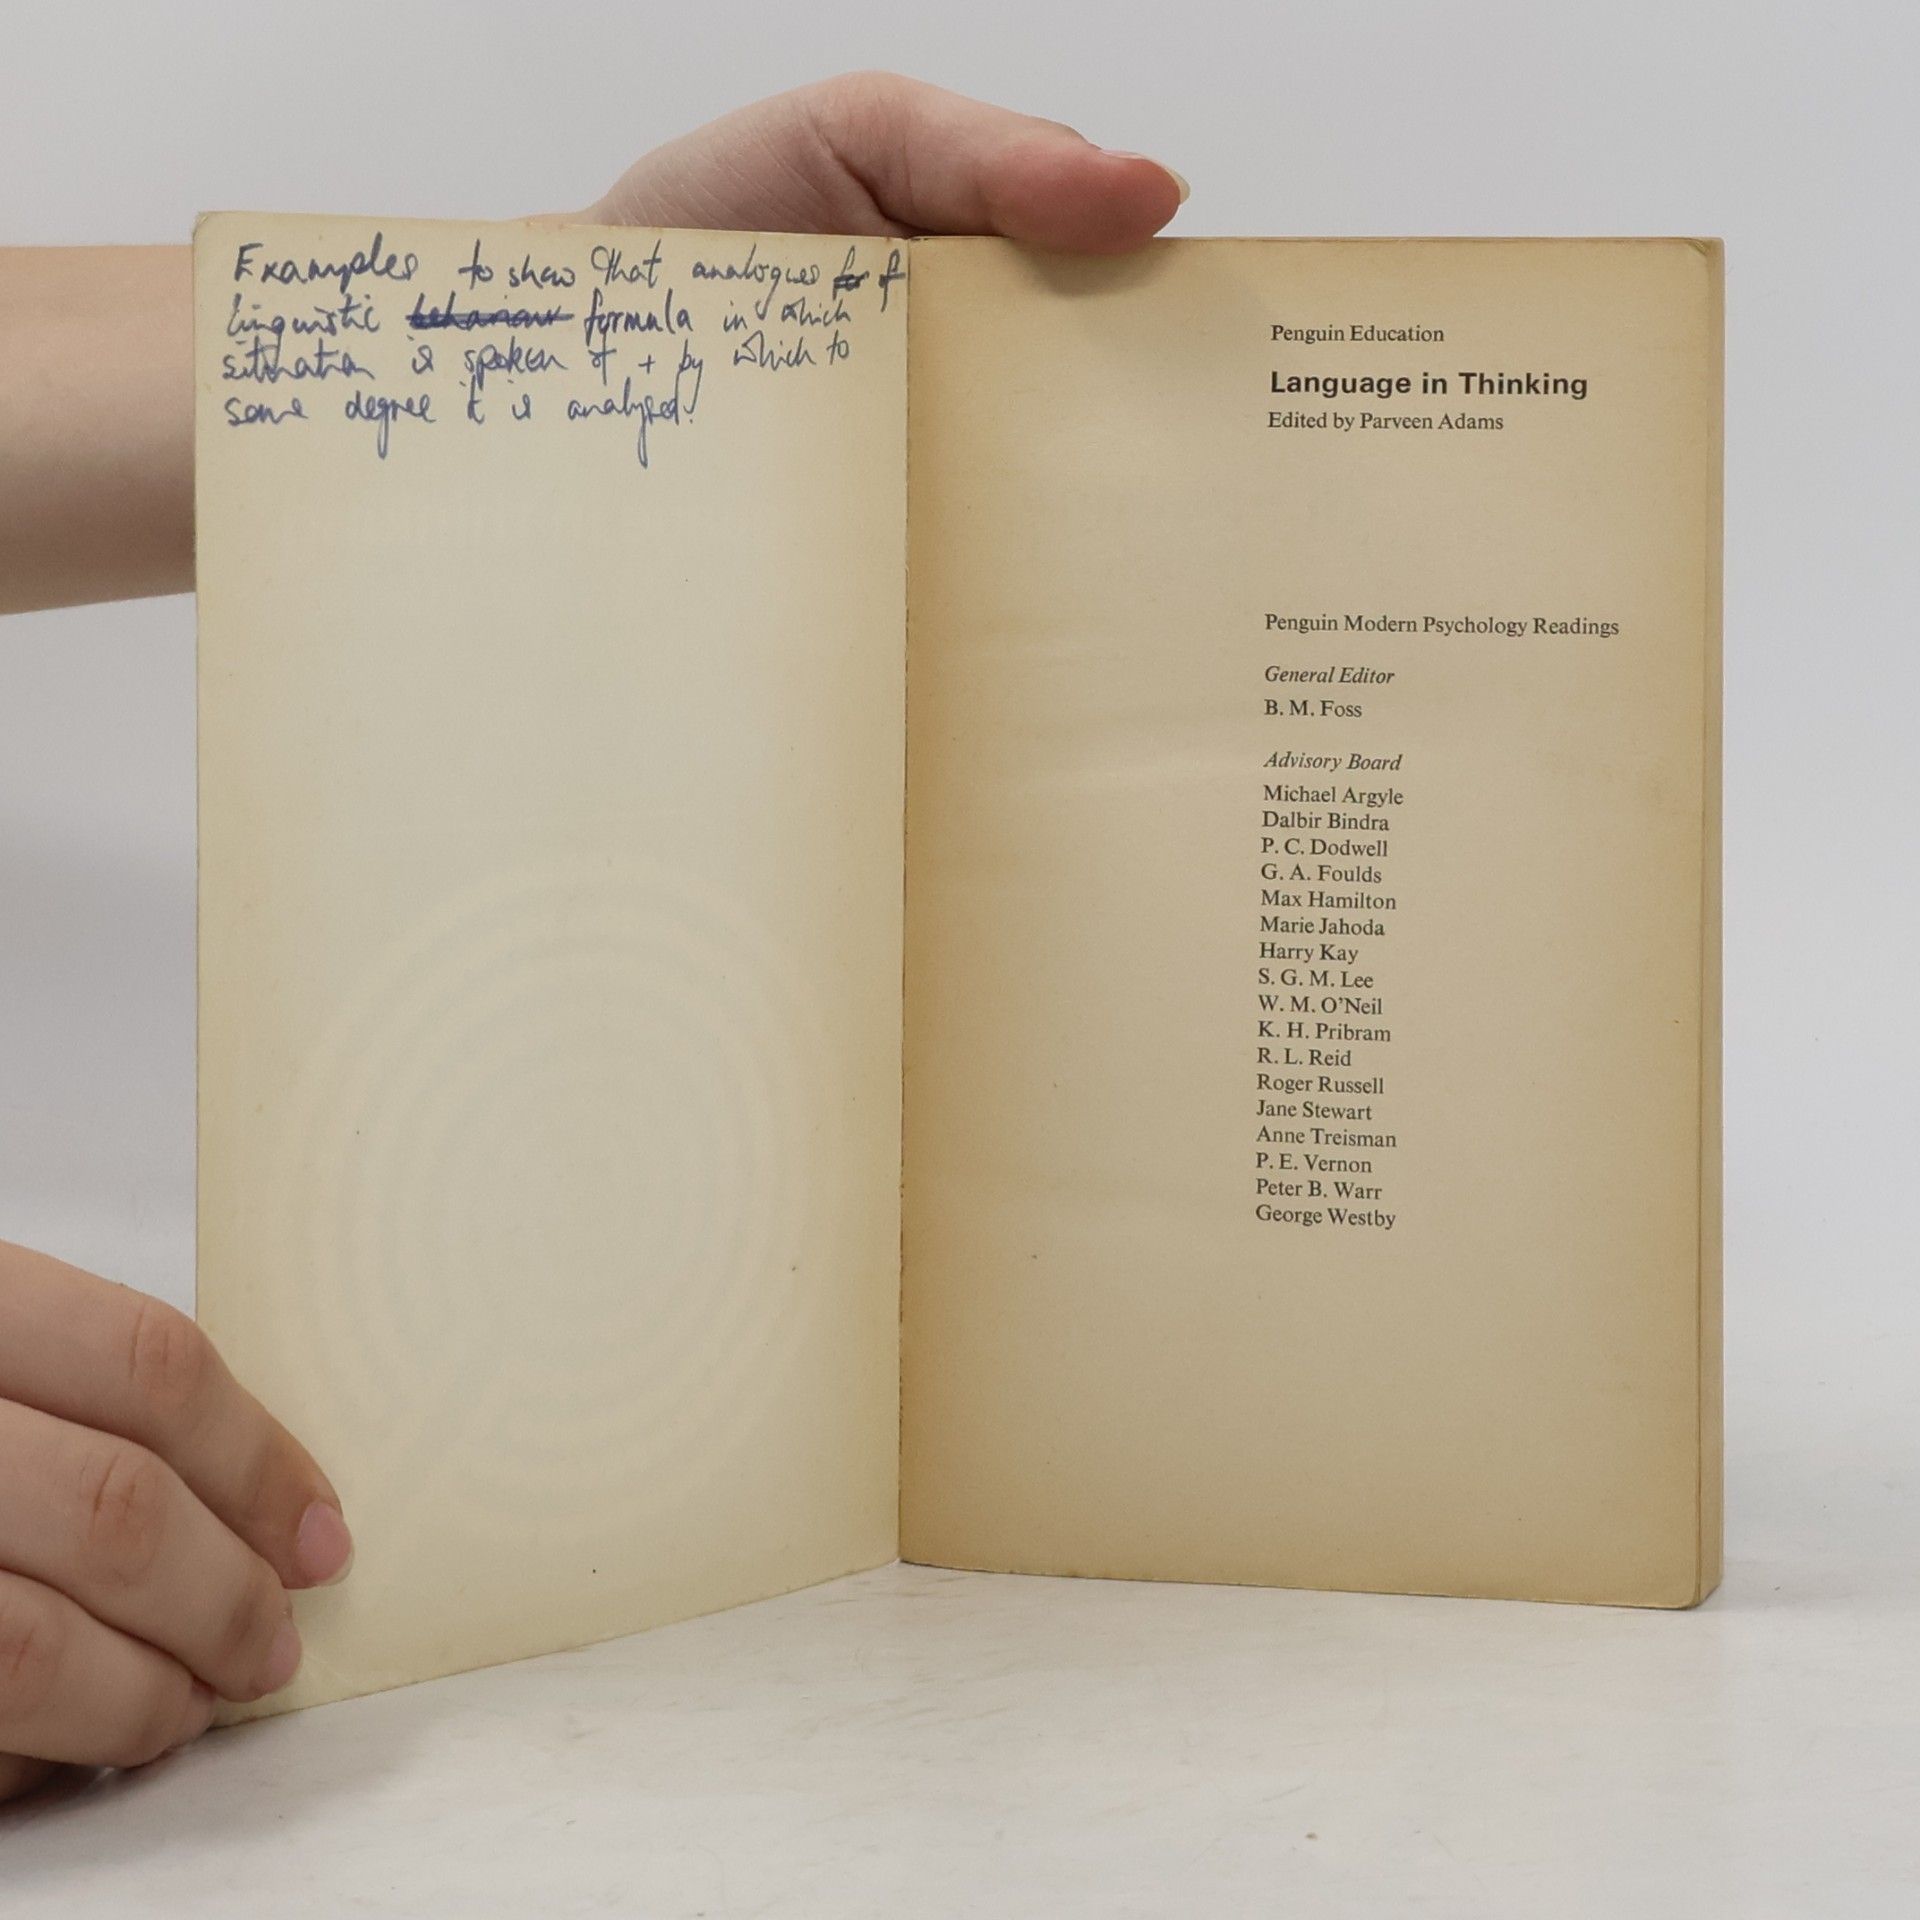 Examples to show that analogues for of
linguistic behaviour formula in which
situation is spoken of + by which to
some degree it is analysed.
Penguin Education
Language in Thinking
Edited by Parveen Adams
Penguin Modern Psychology Readings
General Editor
B. M. Foss
Advisory Board
Michael Argyle
Dalbir Bindra
P. C. Dodwell
G. A. Foulds
Max Hamilton
Marie Jahoda
Harry Kay
S. G. M. Lee
W. M. O'Neil
K. H. Pribram
R. L. Reid
Roger Russell
Jane Stewart
Anne Treisman
P. E. Vernon
Peter B. Warr
George Westby